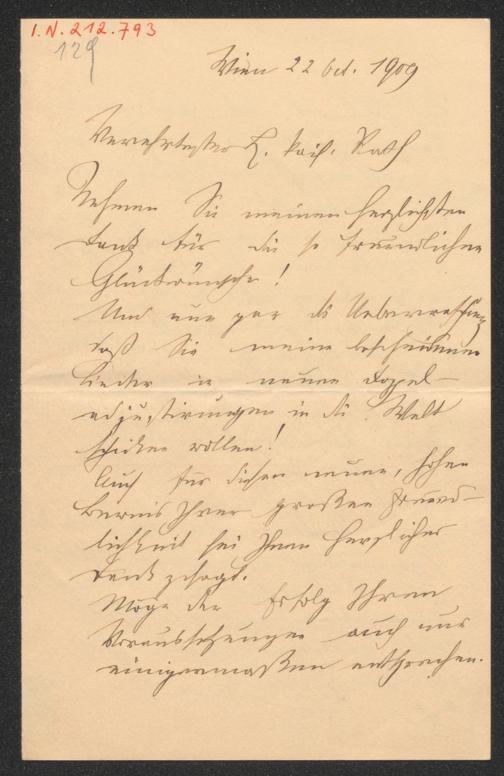 I.N. 212.793
129
Wien 22 Oct. 1909
Verehrtester H. kais. Rath
Nehmen Sie meinen herzlichsten
Dank für die so freundlichen
Glückwünsche!
Und nun gar die Ueberraschung
daß Sie meine bescheidenen
Lieder in neuen Doppel-
adjustirungen in die Welt
schicken wollen!
Auch für diesen neuen, hohen
Beweis Ihrer großen Freund-
lichkeit sei Ihnen herzlicher
Dank gesagt.
Möge der Erfolg Ihren
Voraussetzungen auch nur
einigermaßen entsprechen.